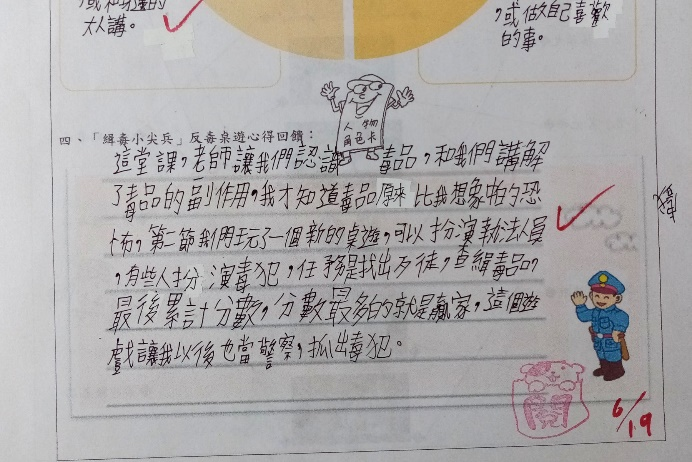 ，或和身邊的
大人講。
，或做自己喜歡
的事。
人物
角色卡
四、「緝毒小尖兵」反毒桌遊心得回饋：
這堂課，老師讓我們認識毒品，和我們講解
了毒品的副作用，我才知道毒品原來比我想象怕的恐
怖，第二節我們玩了一個新的桌遊，可以扮演執法人員
，有些人扮演毒犯，任務是找出歹徒，查緝毒品，
最後累計分數，分數最多的就是贏家，這個遊
戲讓我以後也當警察，抓出毒犯。
閱
6/19